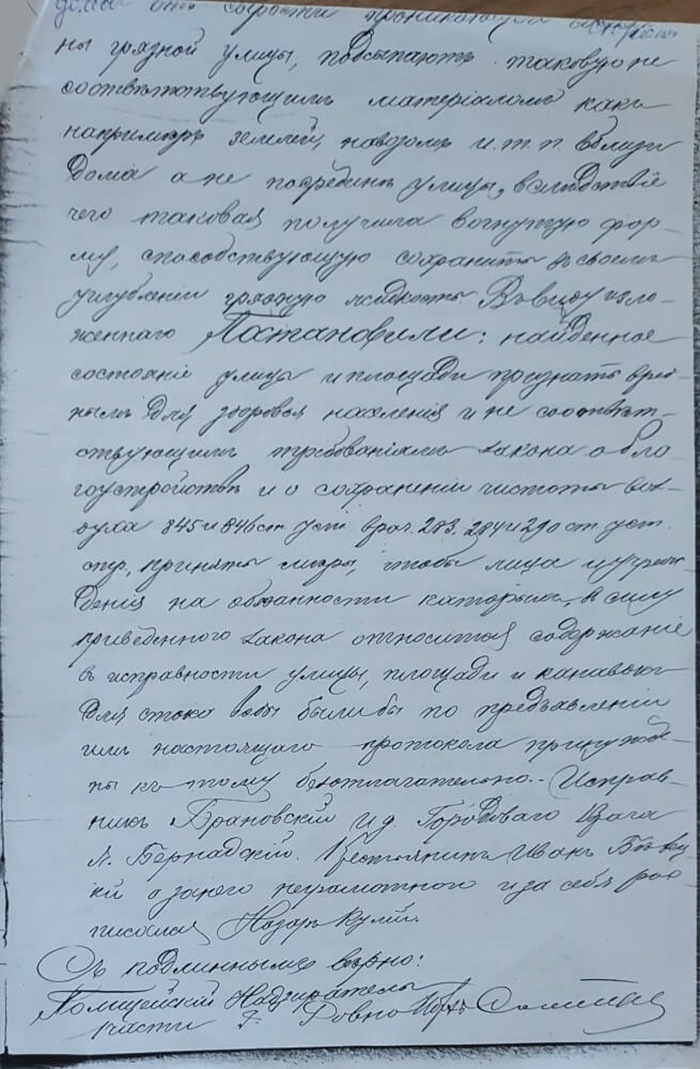 домы отъ сырости проникающей со сторо-
ны грязной улицы, подсыпаютъ таковую не
соотвѣтствующимъ матеріаломъ какъ
напримѣръ землей, навозомъ и. т. п. вблизи
дома а не посрединѣ улицы, вслѣдствіе
чего таковая получила вогнутую фор-
му, способствующую сохранить въ своемъ
углубленіи грязную жидкость Въ виду изло-
женнаго Постановили: найденное
состояніе улицы и площади признать вред-
нымъ для здоровья населенія и не соотвѣт-
ствующимъ требованіямъ закона о бла-
гоустройствѣ и о сохраненіи чистоты воз-
духа 845 и 846 ст уст врач. 283. 284 и 290 ст. уст.
стр, принять мѣры, чтобы лица и учреж-
денія на обязанности которыхъ, въ силу
приведенного закона относится содержаніе
въ исправности улицы, площади и канавокъ
для стока воды были бы по предъявленіи
имъ настоящаго протокола принужде-
ны къ тому безотлагательно.. Исправ-
никъ Брановскій И д. Городоваго Врача
А. Бернадскій. Крестьянинъ Иванъ
кій а за него неграмотного и за себя рос-
писался Назаръ Кулій.
Съ подлиннымъ вѣрно:
Полицейскій Надзиратель
части г. Ровно